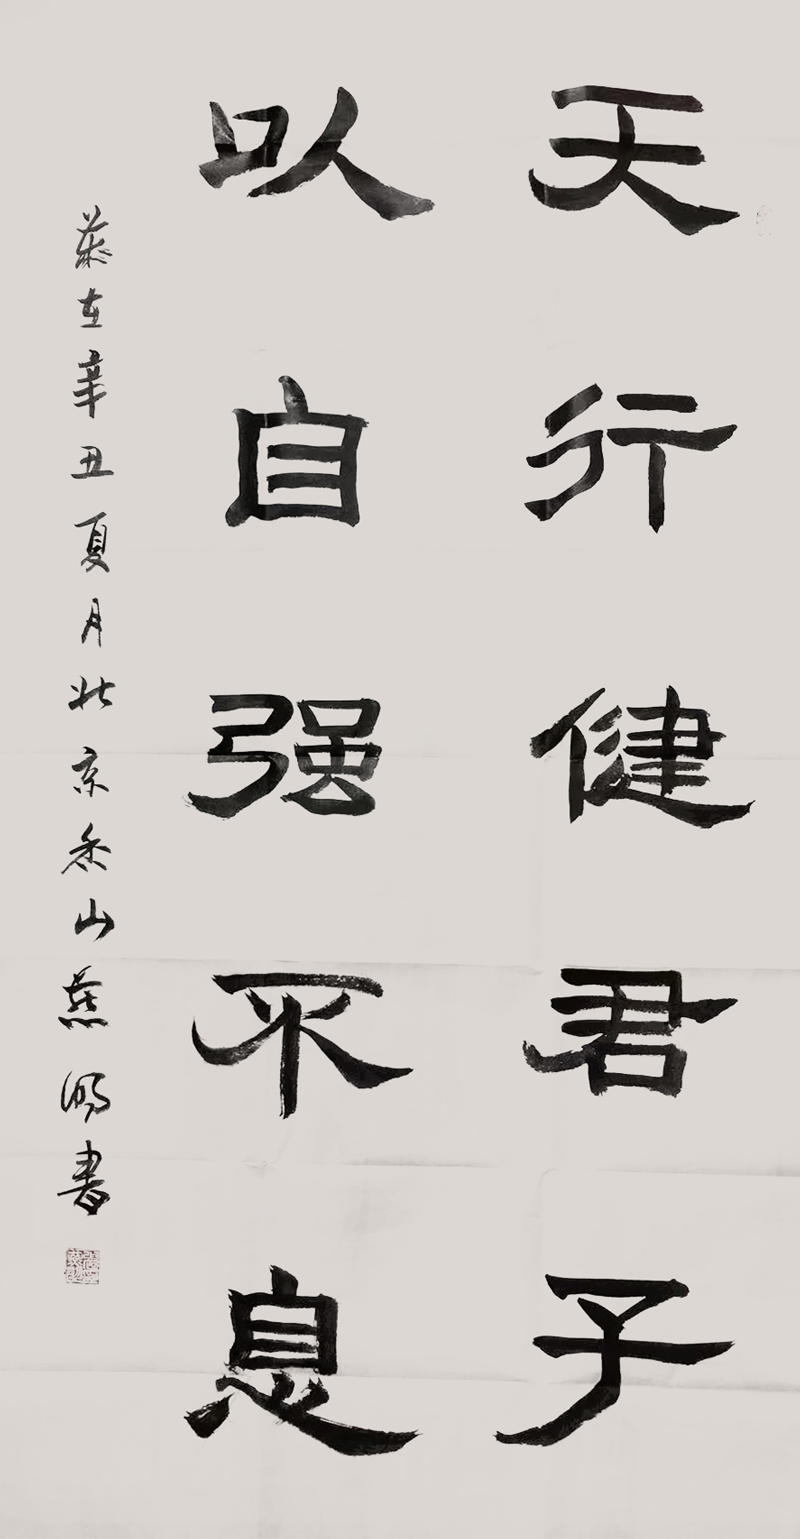 天行健君子
以自强不息
岁在辛丑夏月北京香山燕鸿书